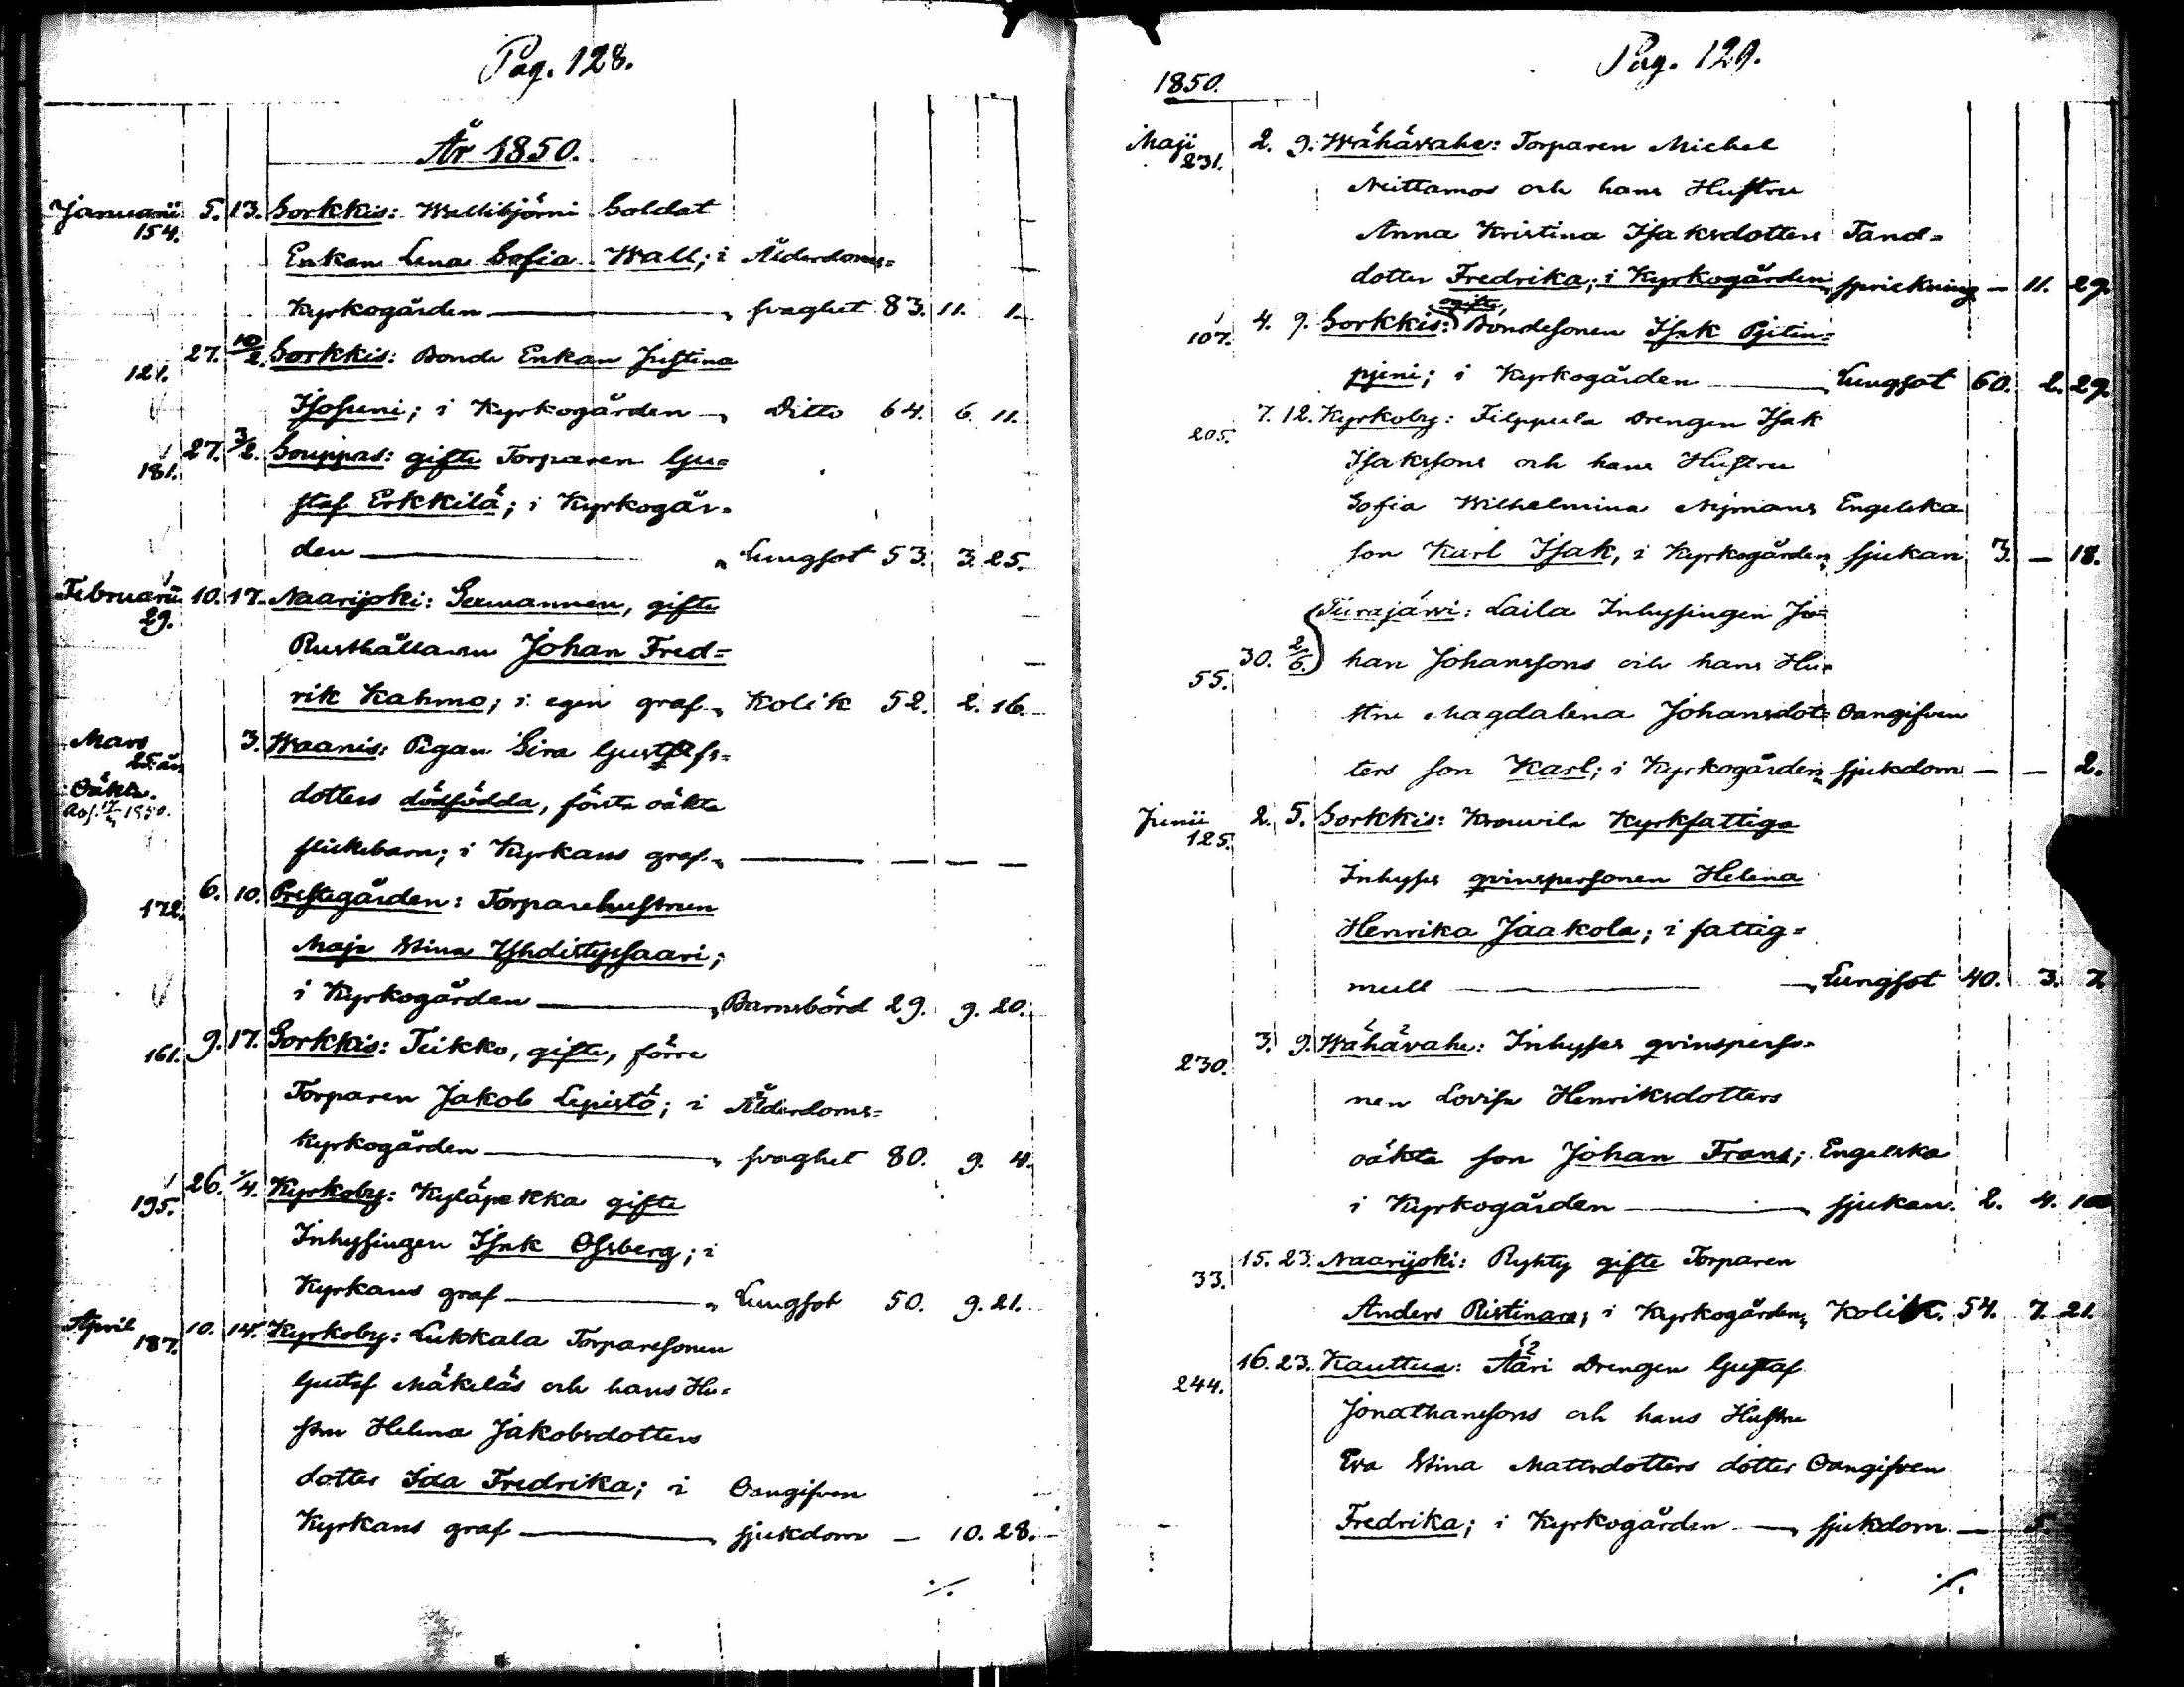 Pag. 128.
År 1850.
Januarii 5. 13. Sorkkis: Wallibjörni Soldat
154.
Enkan Lena Sofia Wall; i Ålderdoms=
Kyrkogården — svaghet 83. 11. 1.
27. 10/2. Sorkkis: Bonde Enkan Justina
121.
Isosuni; i Kyrkogården — Ditto 64. 6. 11.
27. 3/2. Souppas: gifte Torparen Gu=
181.
staf Erkkilä; i Kyrkogår=
den — Lungsot 53. 3. 25.
Februarii 10. 17. Naarijoki: Seemannen, gifte
29.
Rusthållaren Johan Fred=
rik Kahmo; i egen graf — Kolik 52. 2. 16.
Mars 3. Waanis: Pigan Sira Gustafs=
25 år
dotters dödfödda, första oäkta
Oäkta.
1850.
flickebarn; i Kyrkans graf — — — —
6. 10. Prestegården: Torparehustrun
172.
Maja Stina Yhdistyssaari;
i Kyrkogården — Barnsbörd 29. 9. 20.
9. 17. Sorkkis: Teikko, gifte, förre
161.
Torparen Jakob Lepistö; i Ålderdoms=
Kyrkogården — svaghet 80. 9. 4.
26. 1/4. Kyrkoby: Kyläpekka gifte
195.
Inhysingen Isak Ofsberg; i
Kyrkans graf — Lungsot 50. 9. 21.
April 10. 14. Kyrkoby: Lukkala Torparesonen
187.
Gustaf Mäkiläs och hans Hu=
stru Helena Jakobsdotters
dotter Ida Fredrika; i Oangifven
Kyrkans graf — sjukdom — 10. 28.
./.
Pag. 129.
1850.
Maji 2. 9. Wähävahe: Torparen Michel
231.
Niittamos och hans Hustru
Anna Kristina Isaksdotters Tand=
dotter Fredrika; i Kyrkogården, sprickning — 11. 29.
ogifte,
4. 9. Sorkkis: Bondesonen Isak Pjitin=
107.
pjeni; i Kyrkogården — Lungsot 60. 2. 29.
7. 12. Kyrkoby: Filppula Drengen Isak
205.
Isakssons och hans Hustru
Sofia Wilhelmina Nymans Engelska
son Karl Isak, i Kyrkogården, sjukan 3. — 18.
Tiirajärvi: Laila Inhysingen Jo=
30. 2/6. han Johanssons och hans Hu=
55.
stru Magdalena Johansdot= Oangifven
ters son Karl; i Kyrkogården, sjukdom — — 2.
Junii 2. 5. Sorkkis: Krouvila Kyrkfattiga
125.
Inhyses qvinspersonen Helena
Henrika Jaakola; i fattig=
mull — Lungsot 40. 3. 7.
3. 9. Wähävahe: Inhyses qvinsperso=
230.
nen Lovisa Henriksdotters
oäkta son Johan Frans; Engelska
i Kyrkogården — sjukan. 2. 4.
15. 23. Naarijoki: Ryhty gifte Torparen
33.
Anders Ristinare; i Kyrkogården, Kolik. 54. 7. 21.
16. 23. Kauttua: Ääri Drengen Gustaf
244.
Jonathanssons och hans Hustru
Eva Stina Mattsdotters dotter Oangifven
Fredrika; i Kyrkogården — sjukdom —
./.